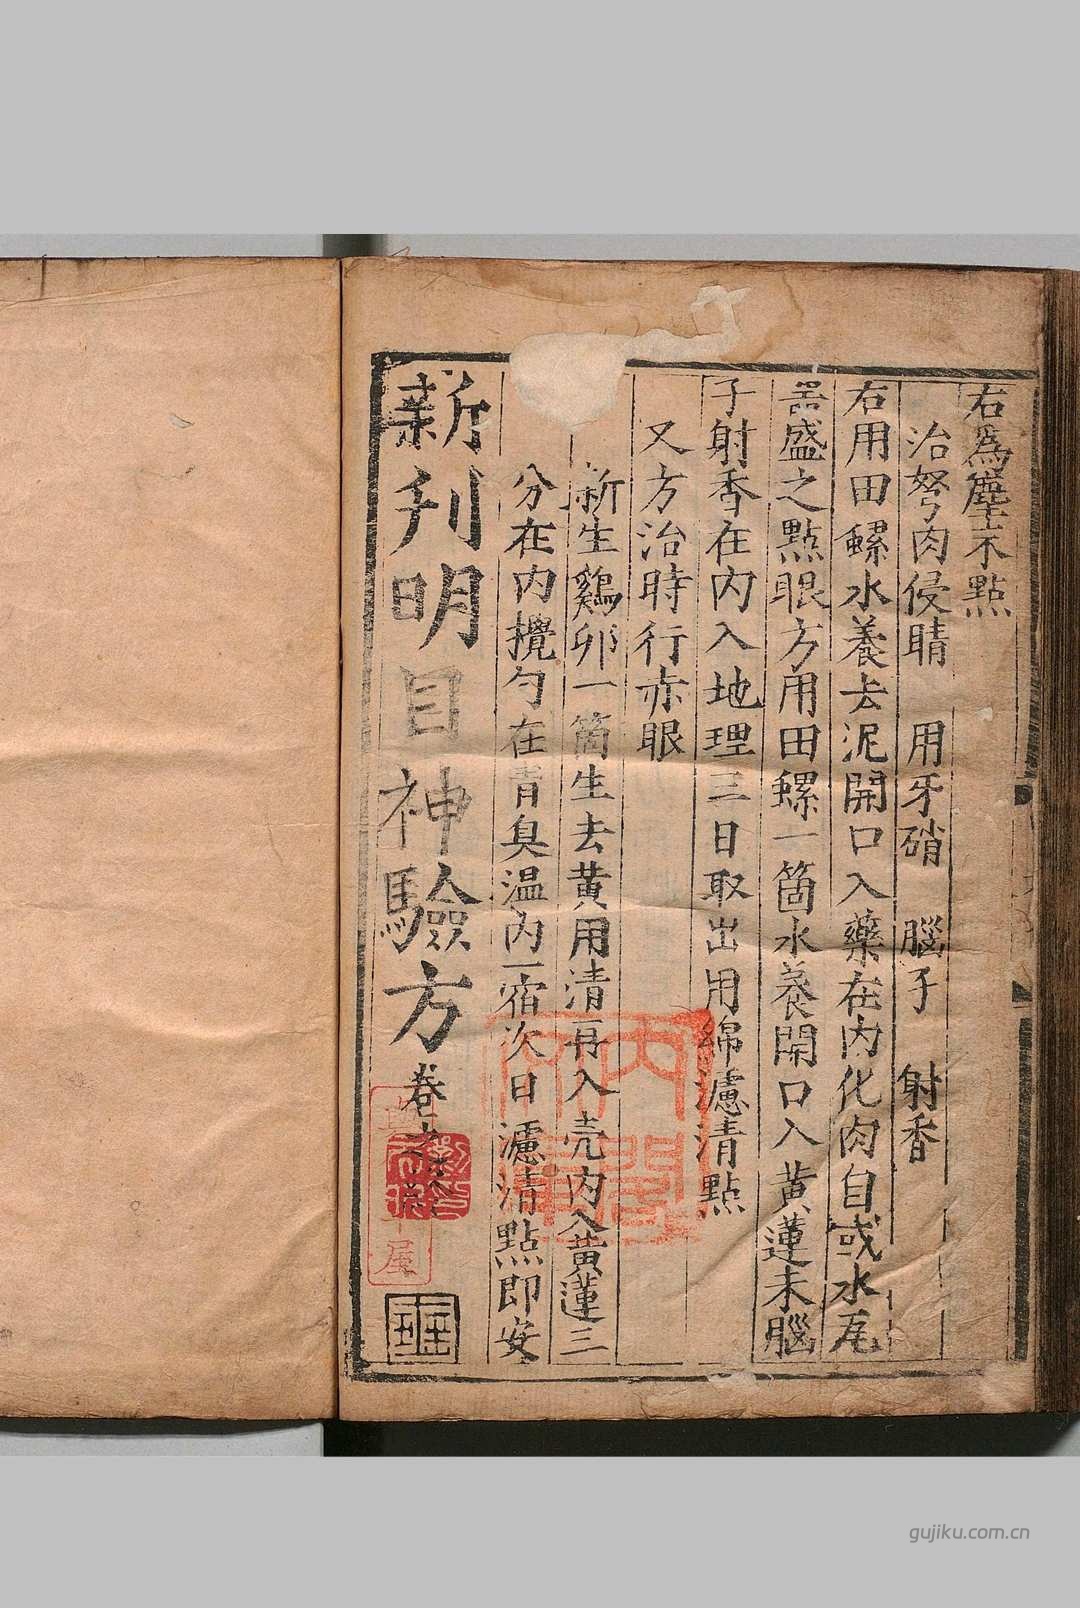 右為塵末點
治弩肉侵睛 用牙硝 腦子 射香
右用田螺水養去泥開口入藥在內化肉自或水瓦
噐盛之點眼方用田螺一箇水養開口入黃蓮末腦
子射香在內入地理三日取出用綿濾清點
又方治時行赤眼
新生鷄卵一箇生去黃用清再入壳內入黃蓮三
分在內攪勻在青臭温內一宿次日濾清點即安
新刊明目神驗方卷之
gujiku.com.cn